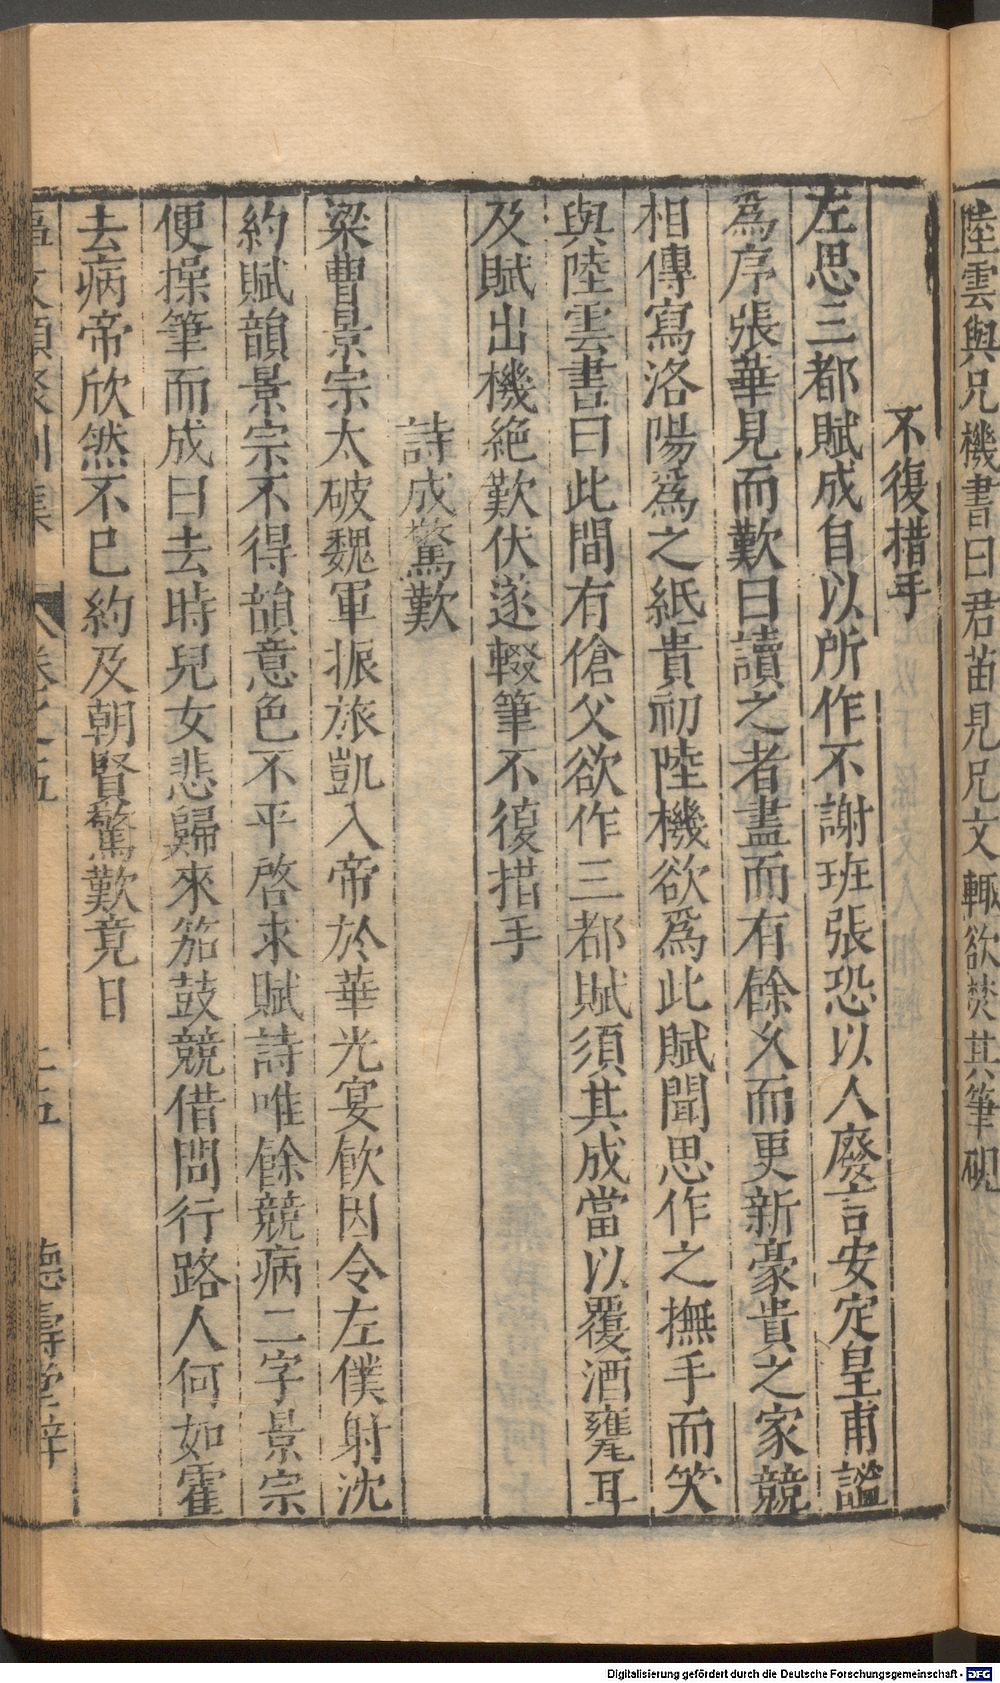 陸雲與兄機書曰君苗見兄文輙欲焚其筆硯
不復措手
左思三都賦成自以所作不謝班張恐以人廢言安定皇甫謐
爲序張華見而歎曰讀之者盡而有餘乆而更新豪貴之家競
相傳寫洛陽爲之紙貴初陸機欲爲此賦聞思作之撫手而笑
與陸雲書曰此間有傖父欲作三都賦須其成當以覆酒甕耳
及賦出機絶歎伏遂輟筆不復措手
詩成驚歎
梁曹景宗大破魏軍振旅凱入帝於華光宴飲因令左僕射沈
約賦韻景宗不得韻意色不平啓求賦詩唯餘競病二字景宗
便操筆而成曰去時兒女悲歸來笳鼓競借問行路人何如霍
去病帝欣然不已約及朝賢驚歎竟日
卷之五
十五
德壽堂梓
Digitalisierung gefördert durch die Deutsche Forschungsgemeinschaft - DFG